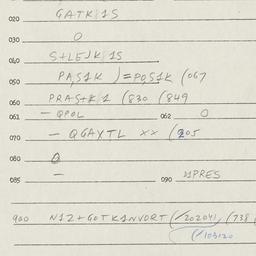 020 GATK 1S
030 0
040 S+LEJK 1S
050 PAS1K )=POS1K (067
060 PRAS+K 1 (830 (849
061 — QPOL 062 0
070 — QGAYTL xx (205
080 0
085 — 090 21PRES
900 N1Z+GOTK1NVORT (/202041 (738
(/103120